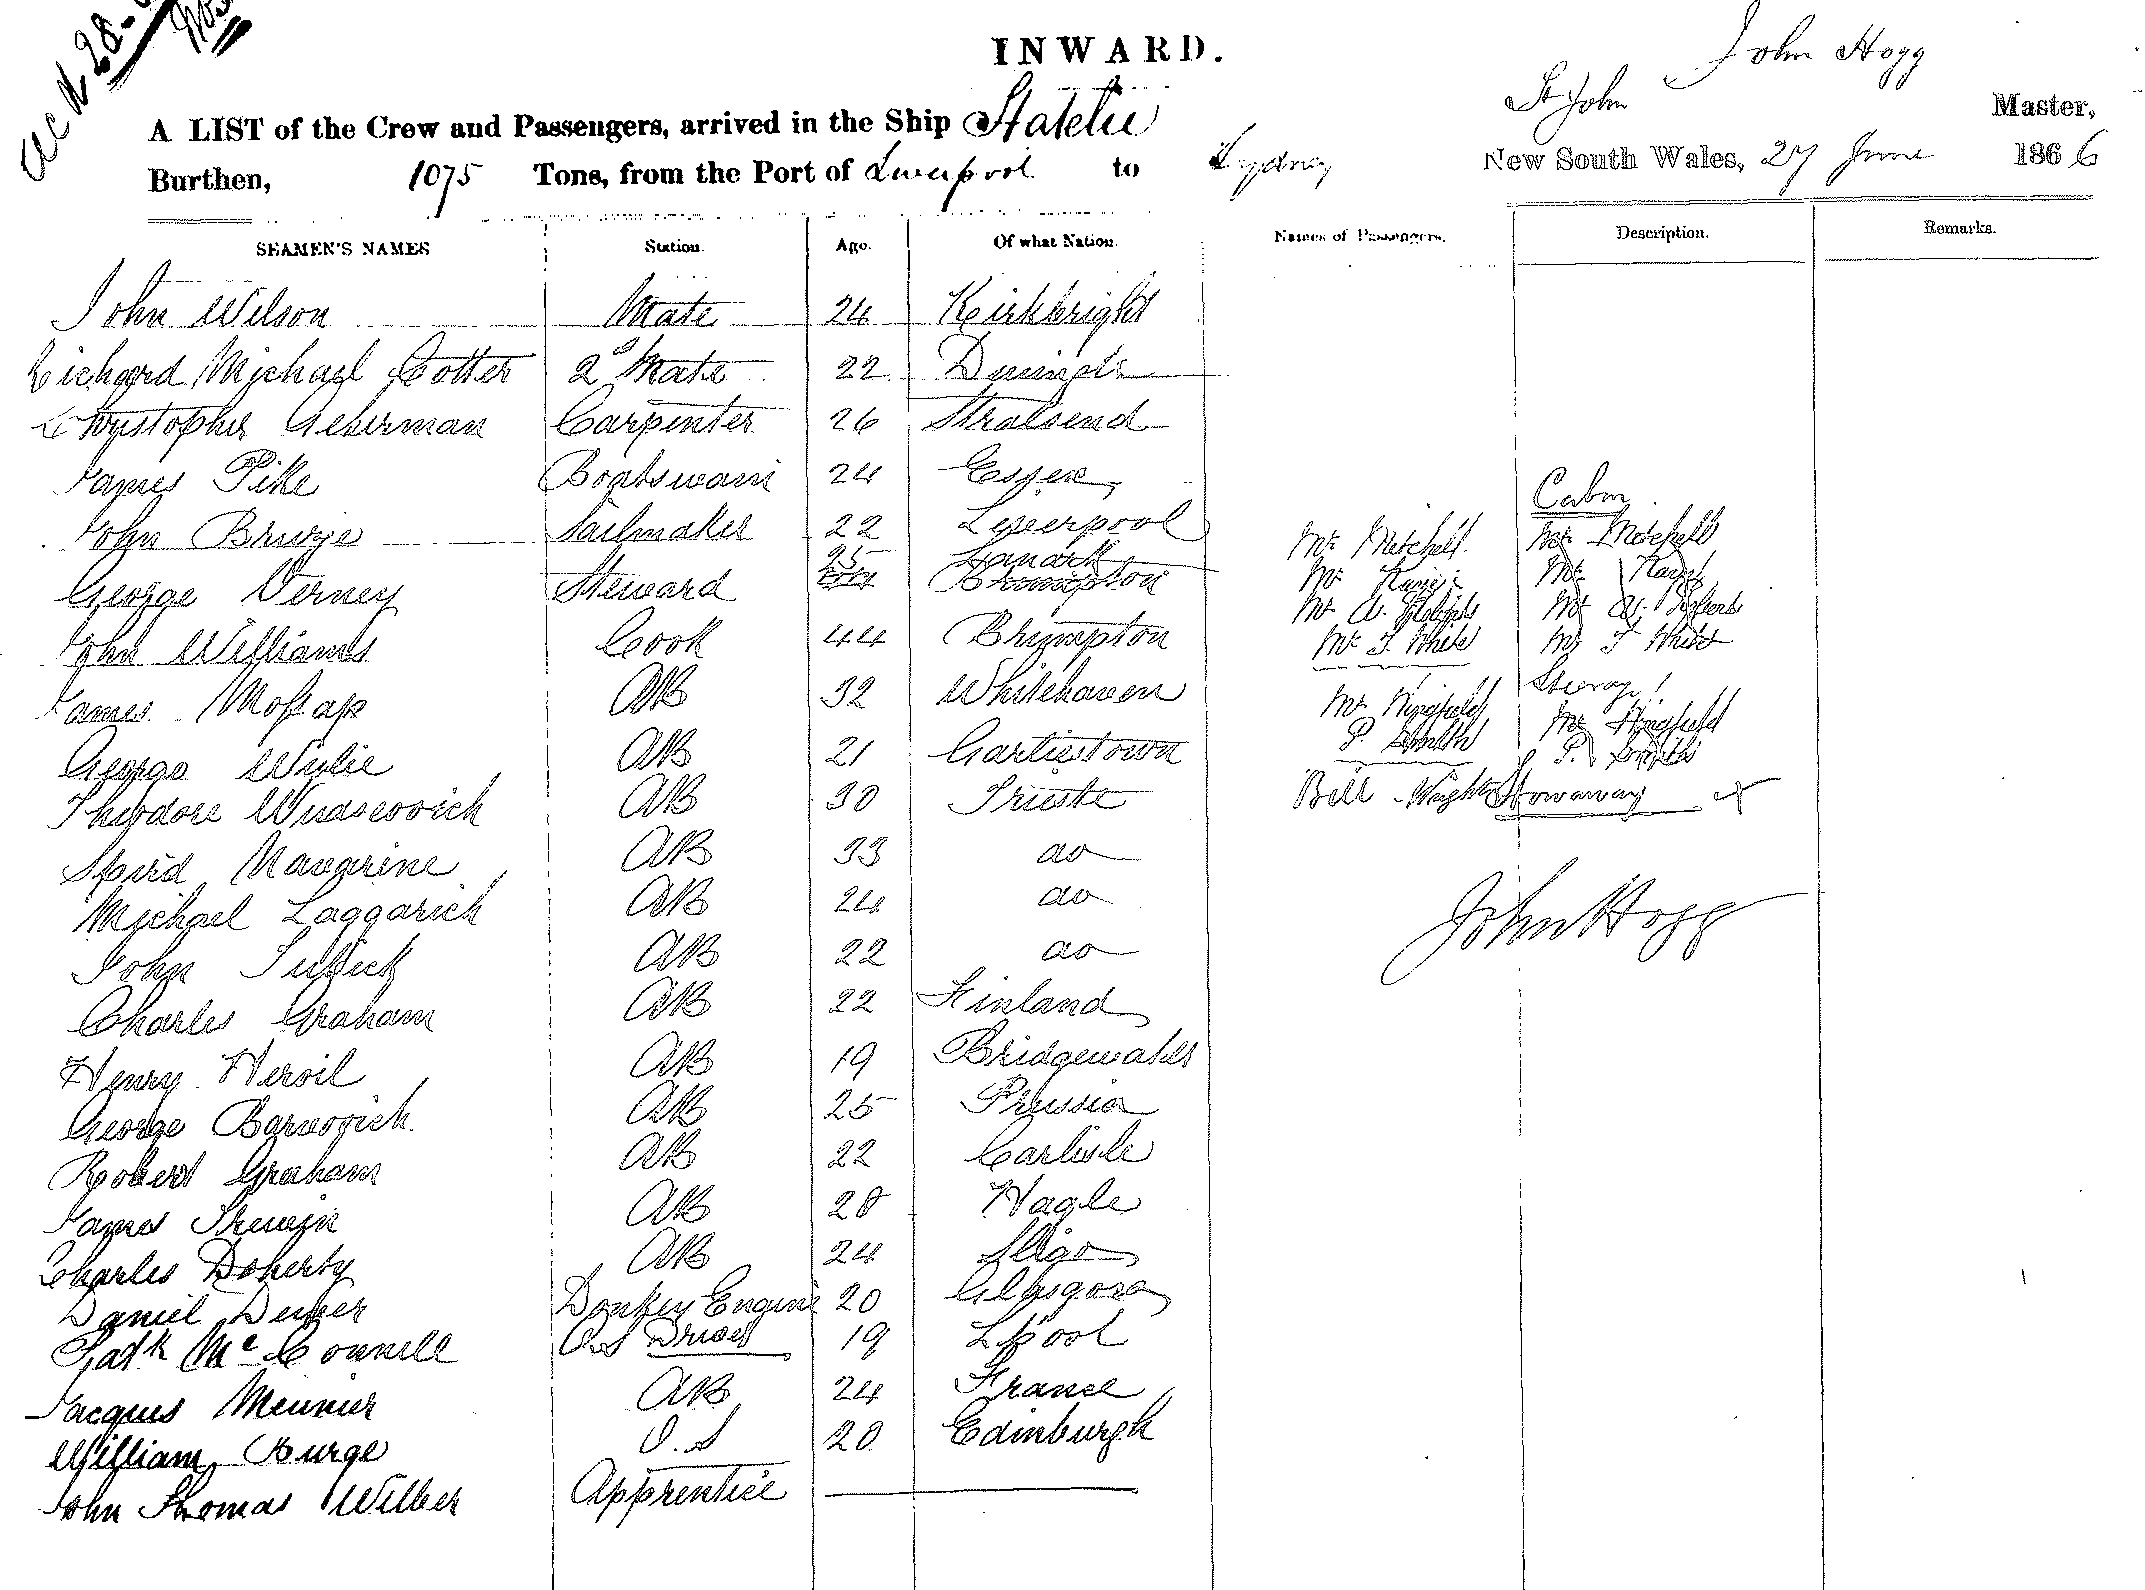 INWARD.
John Hogg
St John
A LIST of the Crew and Passengers, arrived in the Ship Master,
Burthen, 1075 Tons, from the Port of Liverpool to Sydney New South Wales, 27 June 1866
SEAMEN'S NAMES Station. Age. Of what Nation. Names of Passengers. Description. Remarks.
John Wilson Mate 24 Kirkbright
Richard Michael Cotter 2d Mate 22
Christopher Ackerman Carpenter 26 Stralsend
James Pike Boatswain 24 Essex
John Sailmaker 22 Liverpool
25 Lanark
George Verney Steward Brompton
John Williams Cook 44 Brimpton
James Mossap AB 32 Whitehaven
George Wylie AB 21 Gartiestown
Theodore AB 30 Trieste
Navarine AB 33 do
Michael Laggarich AB 24 do
John AB 22 do
Charles Graham AB 22 Finland
Henry AB 19 Bridgewater
George AB 25 Prussia
Robert Graham AB 22 Carlisle
James AB 28 Hagle
Charles Doherty AB 24 Sligo
Daniel Donkey Engine 20 Glasgow
Patk McConnell O.S Driver 19 L'pool
Jacques Meunier AB 24 France
William Burge O.S 20 Edinburgh
John Thomas Wilber Apprentice
Cabin
Mr Mitchell Mr Mitchell
Mr Mr
Mr W. Roberts Mr W. Roberts
Mr T. White Mr T White
Steerage
Mr Kingfield Mr Kingfield
P. Smith P. Smith
Bill Stowaway x
John Hogg